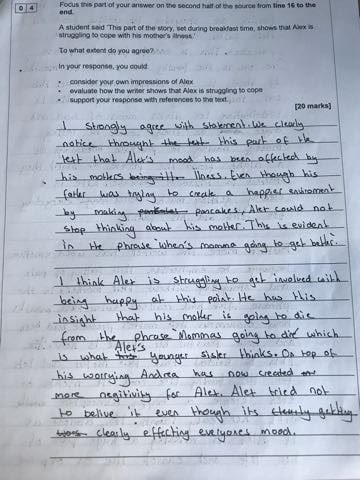 0 4
Focus this part of your answer on the second half of the source from line 16 to the
end.
A student said 'This part of the story, set during breakfast time, shows that Alex is
struggling to cope with his mother's illness.'
To what extent do you agree?
In your response, you could:
• consider your own impressions of Alex
• evaluate how the writer shows that Alex is struggling to cope
• support your response with references to the text.
[20 marks]
I strongly agree with statement. We clearly
notice throught the text this part of the
text that Alex's mood has been affected by
his mothers being ill. Illness. Even though his
father was trying to create a happier enviroment
by making pancakes, Alex could not
stop thinking about his mother. This is evident
in the phrase 'when's momma going to get better'.
I think Alex is struggling to get involved with
being happy at this point. He has this
insight that his mother is going to die
from the phrase 'Mommas going to die' which
is what Alex's younger sister thinks. On top of
his worrying Andrea has now created
more negitivity for Alex. Alex tried not
to belive it even though its clearly getting
clearly effecting everyones mood.